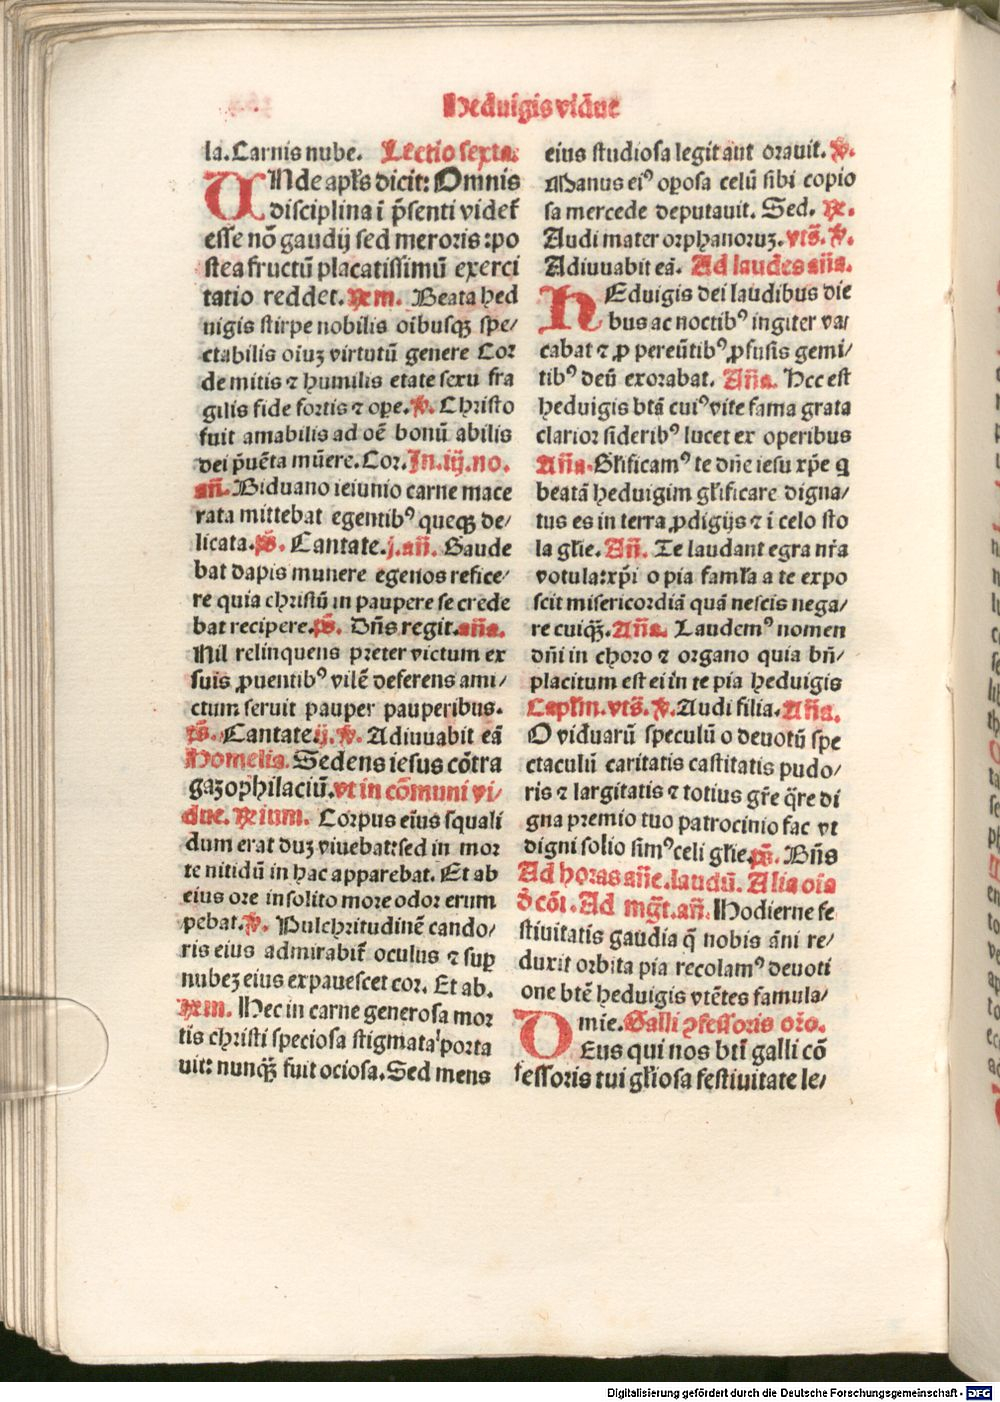 Heduigis vidue
la. Carnis nube. Lectio sexta.
UNde apl's dicit: Omnis
disciplina ī p̄senti videt᷑
esse nō gaudij sed meroris: po
stea fructū placatissimū exerci
tatio reddet. ℟m. Beata hed
uigis stirpe nobilis oībusqꝫ spe/
ctabilis oīuꝫ virtutū genere Cor
de mitis ⁊ humilis etate sexu fra
gilis fide fortis ⁊ oꝑe. ℣. Christo
fuit amabilis ad oē bonū abilis
dei p̄uēta mūere. Cor. In .iij. no.
añ. Biduano ieiunio carne mace
rata mittebat egentibꝰ queqꝫ de/
licata. p̄s. Cantate. j. añ. Gaude
bat dapis munere egenos refice/
re quia christū in paupere se crede
bat recipere. p̄s. Dn̄s regit. aña.
Nil relinquens preter victum ex
suis ꝓuentibꝰ vilē deferens ami/
ctum seruit pauper pauperibus.
p̄s. Cantate. ij. ℣. Adiuuabit eā
Homelia. Sedens iesus cōtra
gazophilaciū. vt in cōmuni vi/
due. ℟ium. Corpus eius squali
dum erat duꝫ viuebat: sed in mor
te nitidū in hac apparebat. Et ab
eius ore insolito more odor erum
pebat. ℣. Pulchritudinē cando/
ris eius admirabit᷑ oculus ⁊ suꝑ
nubeꝫ eius expauescet cor. Et ab.
℟m. Hec in carne generosa mor
tis christi speciosa stigmata porta
uit: nunqꝫ̄ fuit ociosa. Sed mens
eius studiosa legit aut orauit. ℣.
Manus eiꝰ oꝑosa celū sibi copio
sa mercede deputauit. Sed. ℟.
Audi mater orphanoruꝫ. vts̄. ℣.
Adiuuabit eā. Ad laudes aña.
HEduigis dei laudibus die
bus ac noctibꝰ ingiter va/
cabat ⁊ ꝓ pereūtibꝰ ꝓfusis gemi/
tibꝰ deū exorabat. Aña. Hec est
heduigis btā cuiꝰ vite fama grata
clarior sideribꝰ lucet ex operibus
Aña. Gl'ificamꝰ te dn̄e iesu xp̄e q
beatā heduigim gl'ificare digna/
tus es in terra ꝓdigijs ⁊ ī celo sto
la gl'ie. Añ. Te laudant egra nr̄a
votula: xp̄i o pia faml'a a te expo
scit misericordiā quā nescis nega/
re cuiqꝫ̄. Aña. Laudemꝰ nomen
dn̄i in choro ⁊ organo quia bn̄/
placitum est ei in te pia heduigis
Capl'm. vts̄. ℣. Audi filia. Aña.
O viduarū speculū o deuotū spe
ctaculū caritatis castitatis pudo/
ris ⁊ largitatis ⁊ totius gr̄e q̄re di
gna premio tuo patrocinio fac vt
digni solio simꝰ celi gl'ie. p̄s. Bn̄s
Ad horas an̄e. laudū. Alia oīa
d̄ cōi. Ad mg̅t. añ. Hodierne fe
stiuitatis gaudia q̄ nobis āni re/
duxit orbita pia recolamꝰ deuoti
one btē heduigis vtētes famula/
mie. Galli ꝯfessoris oro.
DEus qui nos bti̅ galli cō
fessoris tui gl'iosa festiuitate le/
Digitalisierung gefördert durch die Deutsche Forschungsgemeinschaft - DFG